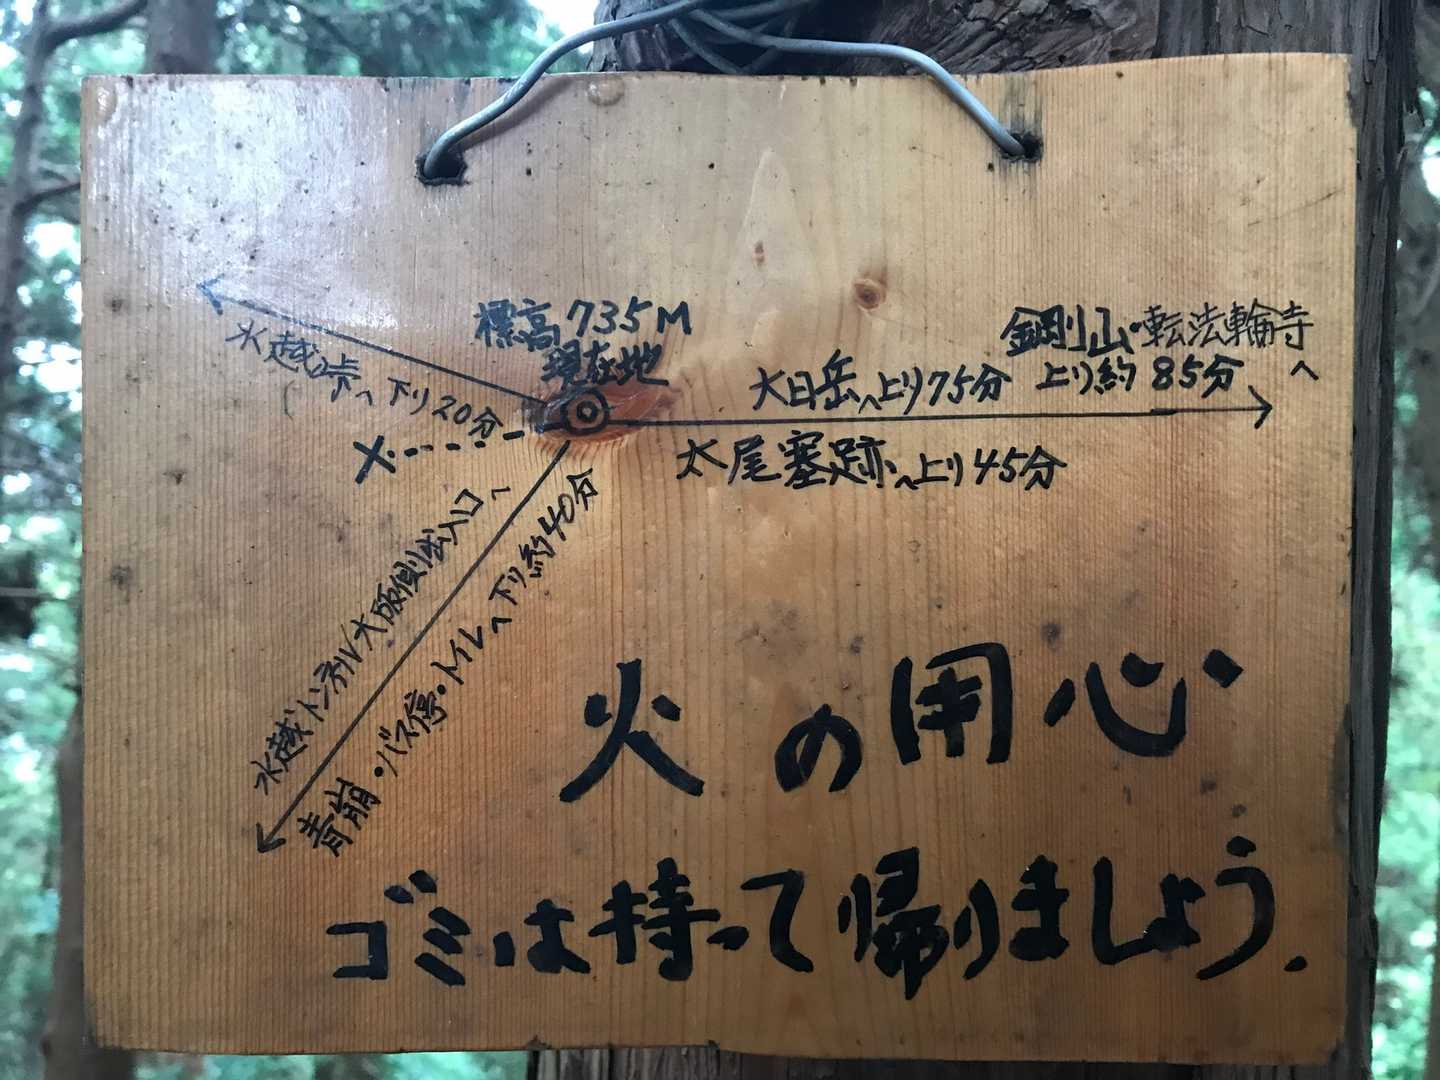 標高735M
現在地
水越峠へ下り20分
金剛山・転法輪寺へ
上り約85分
大日岳へ上り75分
太尾塞跡へ上り45分
水越トンネル大阪側出入口へ
青崩・バス停・トイレへ下り約40分
火の用心
ゴミは持って帰りましょう.